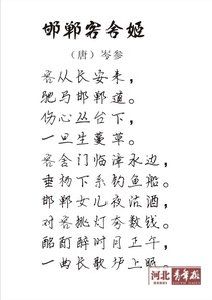 邯郸客舍姬
（唐）岑参
客从长安来，
驰马邯郸道。
伤心丛台下，
一旦生蔓草。
客舍门临漳水边，
垂杨下系钓鱼船。
邯郸女儿夜沽酒，
对客挑灯夸数钱。
酩酊醉时月正午，
一曲长歌垆上眠。
河北青年报